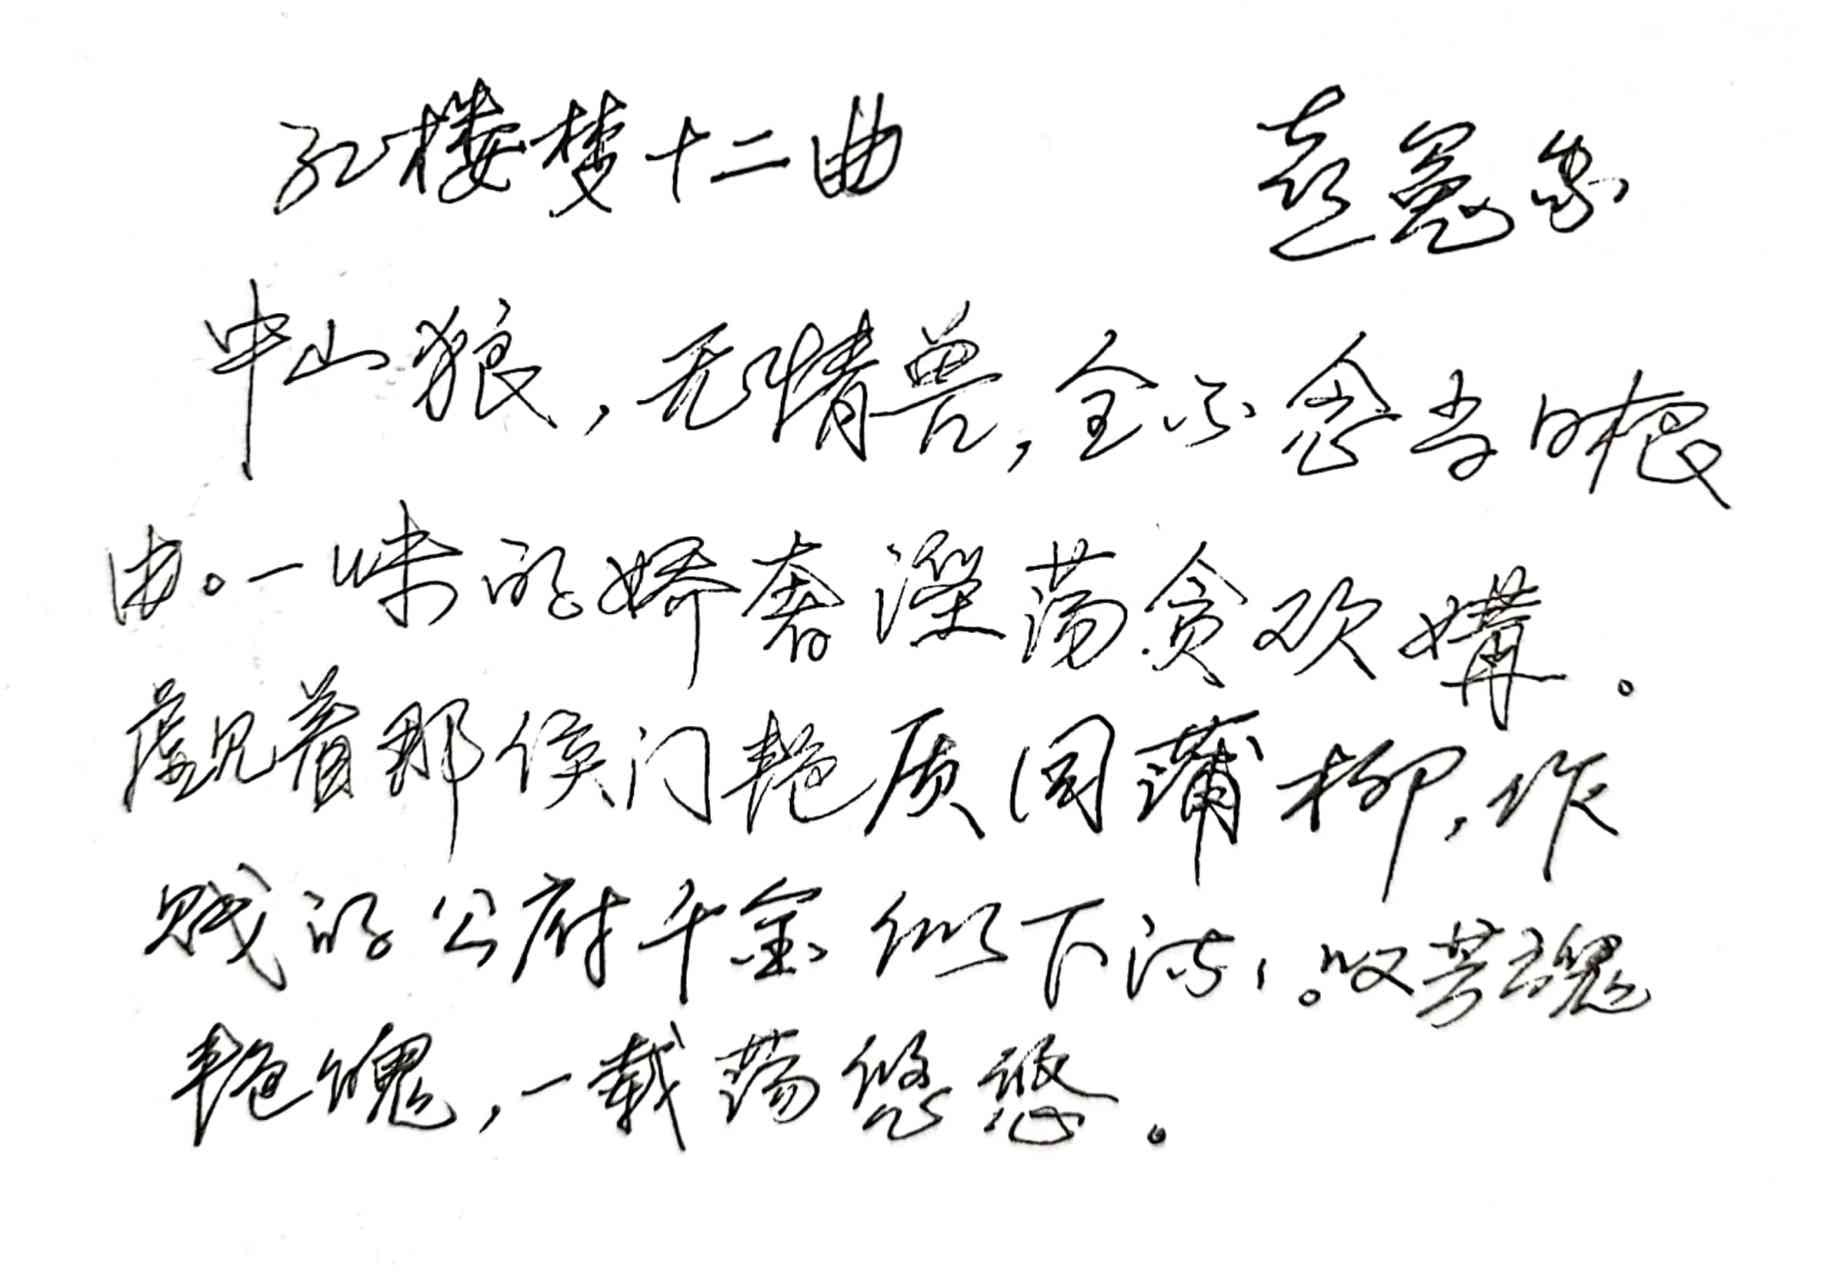 红楼梦十二曲 喜冤家
中山狼，无情兽，全不念当日根
由。一味的娇奢淫荡贪欢媾。
觑着那侯门艳质同蒲柳，作
贱的公府千金似下流，。叹芳魂
艳魄，一载荡悠悠。